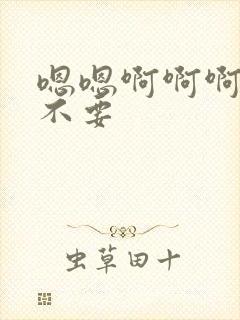 嗯嗯啊啊啊
不要
虫草田十